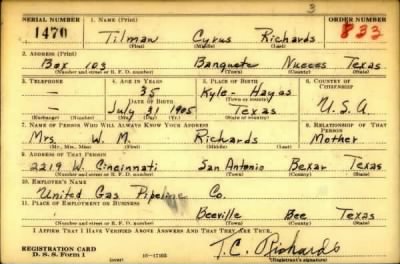 3
SERIAL NUMBER 1. NAME (Print) ORDER NUMBER
1470 Tilman Cyrus Richards 833
(First) (Middle) (Last)
2. ADDRESS (Print)
Box 103 Banquete Nueces Texas
(Number and street or R. F. D. number) (Town) (County) (State)
3. TELEPHONE 4. AGE IN YEARS 5. PLACE OF BIRTH 6. COUNTRY OF CITIZENSHIP
— 35 Kyle - Hays
DATE OF BIRTH (Town or county)
— July 31 1905 Texas U.S.A
(Exchange) (Number) (Mo.) (Day) (Yr.) (State or country)
7. NAME OF PERSON WHO WILL ALWAYS KNOW YOUR ADDRESS 8. RELATIONSHIP OF THAT PERSON
Mrs W. M. Richards Mother
(Mr., Mrs., Miss) (First) (Middle) (Last)
9. ADDRESS OF THAT PERSON
2219 W. Cincinnati San Antonio Bexar Texas
(Number and street or R. F. D. number) (Town) (County) (State)
10. EMPLOYER'S NAME
United Gas Pipeline Co.
11. PLACE OF EMPLOYMENT OR BUSINESS
Beeville Bee Texas
(Number and street or R. F. D. number) (Town) (County) (State)
I AFFIRM THAT I HAVE VERIFIED ABOVE ANSWERS AND THAT THEY ARE TRUE.
REGISTRATION CARD
D. S. S. Form 1 (over) T.C. Richards
(Registrant's signature)